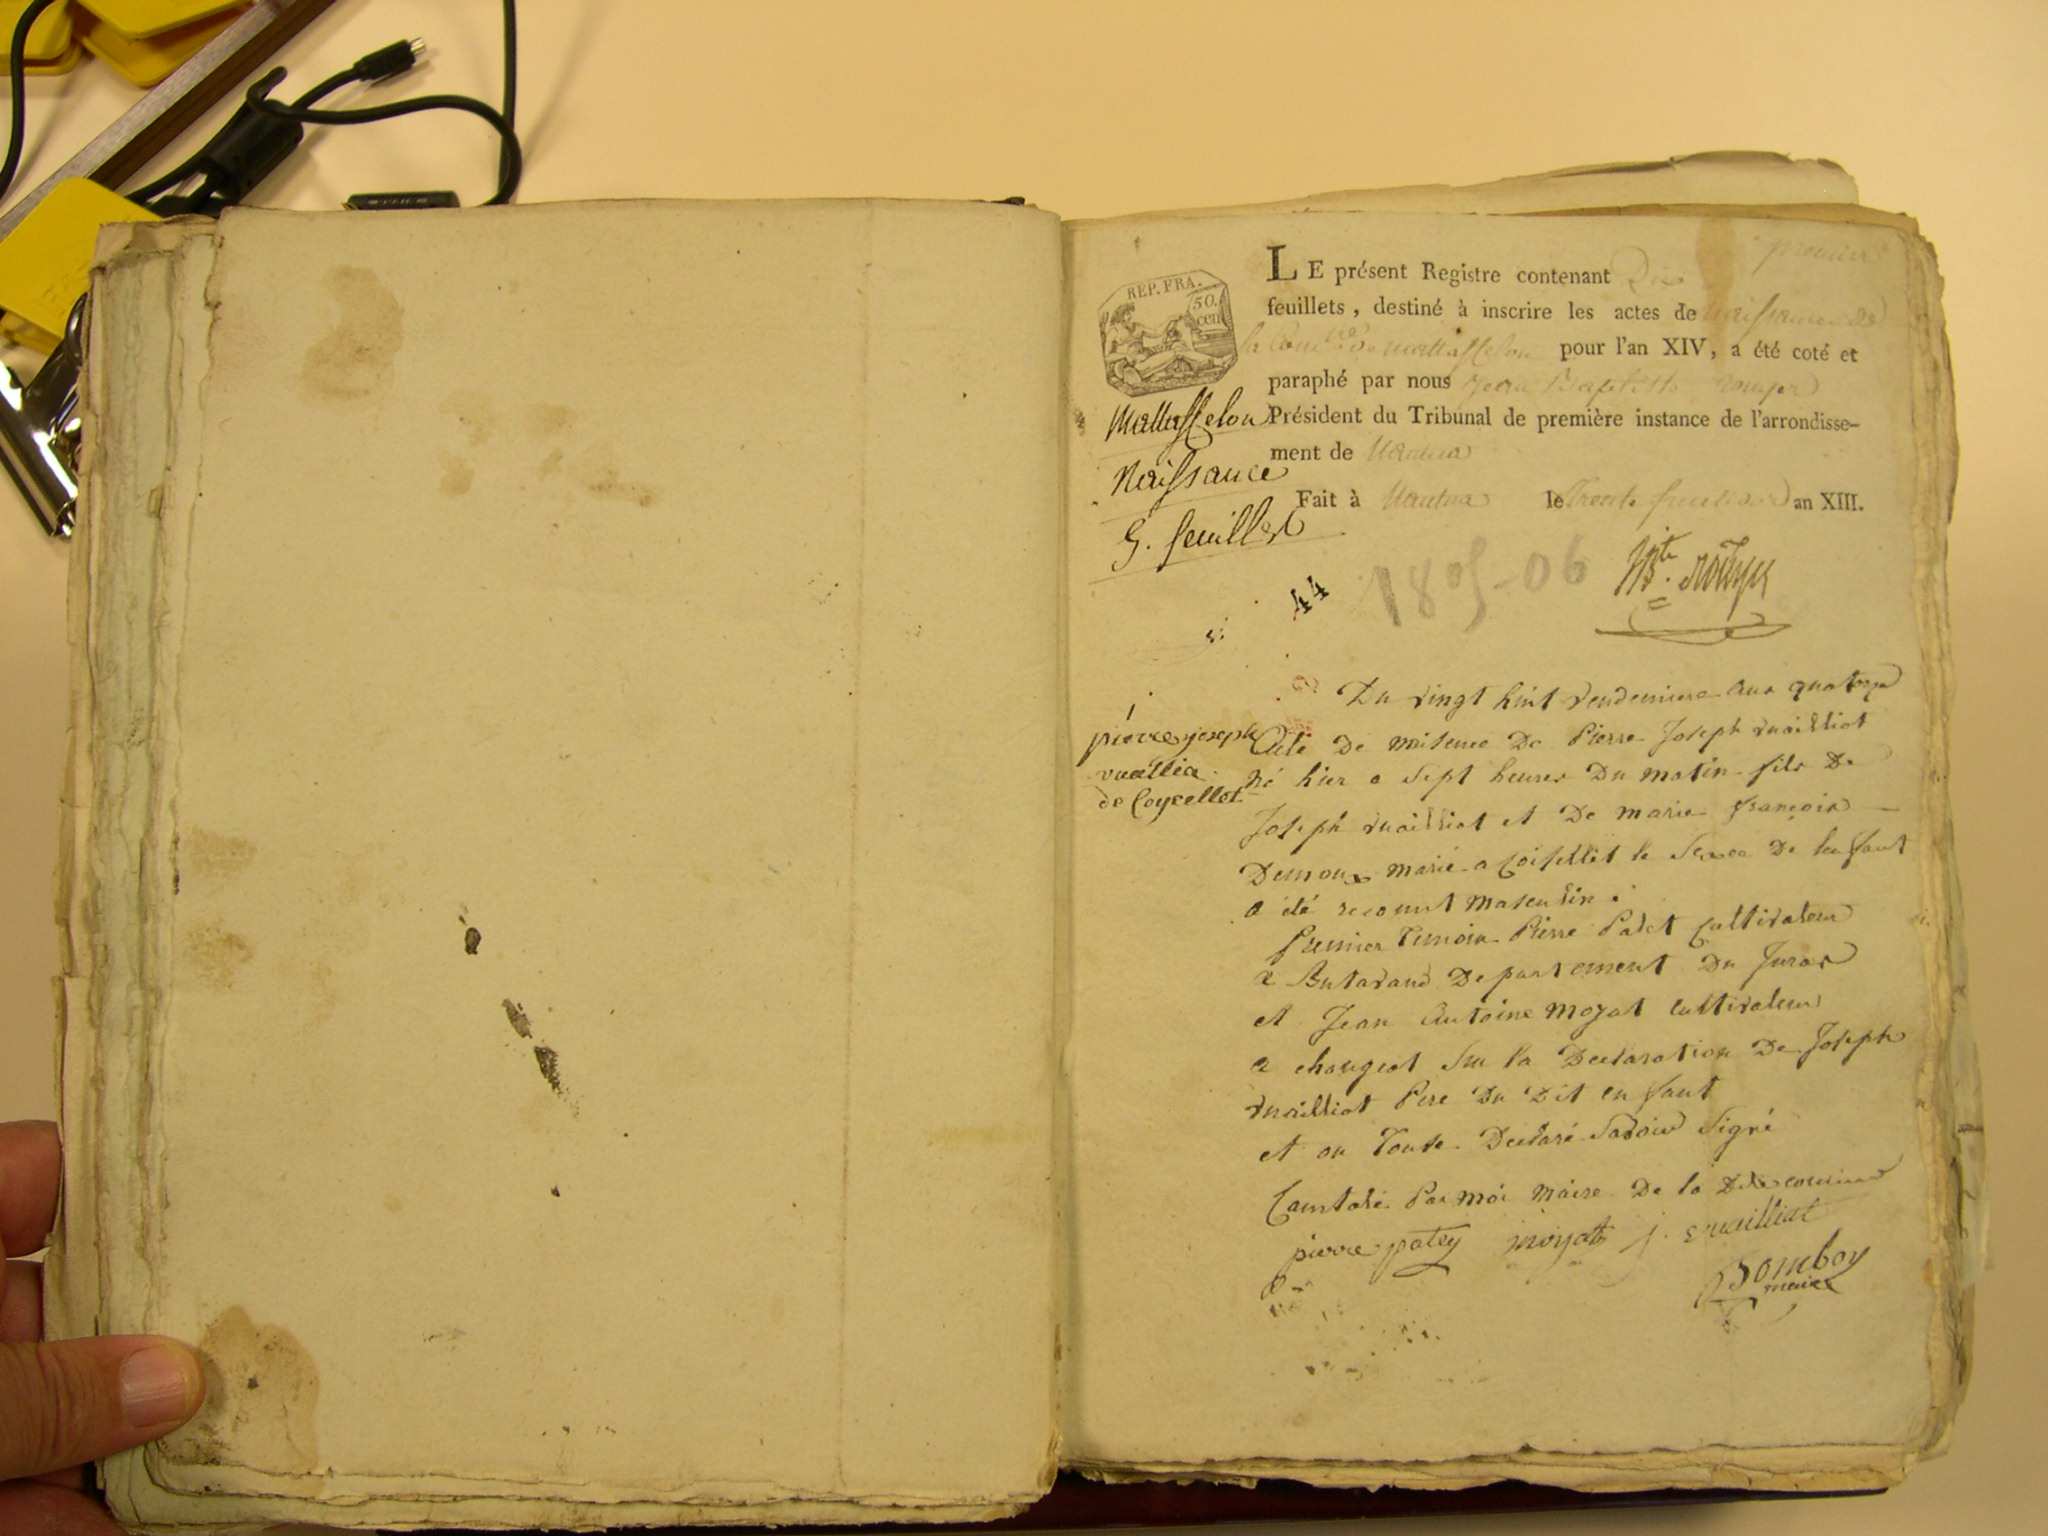 premier
REP. FRA.
50.
cen
LE présent Registre contenant Dix
feuillets, destiné à inscrire les actes de naissance de
la Comne de mattafselon pour l'an XIV, a été coté et
paraphé par nous Jean Baptiste
Président du Tribunal de première instance de l'arrondisse-
ment de Nantua
Fait à Nantua le Trente fructidor an XIII.
Mattafselon
Naifsance
G. feuillet
44
1805-06
1
pierre joseph
vuallia
de Coysellet
Du vingt huit vendemiere quatorze
Acte De naisence De Pierre Joseph vuailliat
né hier a Sept heures Du matin fils De
Joseph vuailliat et De marie françoise
Demoux marié a Coisellet le Sexe De len fant
a été reconnut masculin .
Premier Temoin Pierre Palet Cultivateur
a Departement Du Jura
et Jean Antoine moyat cultivateur
a chougeat Sur la Declaration De Joseph
vuailliat Pere Du Dit en fant
et on Touts Declaré Savoir Signé
Constaté Par moi maire De la
pierre patey moyat j. vuailliat
Bomboy
maire